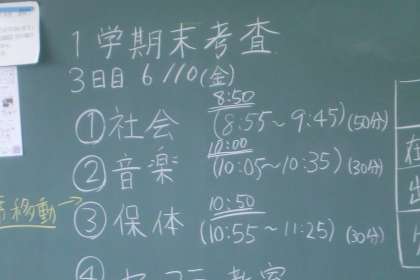 1学期末考査
3日目 6/10(金)
8:50
①社会 (8:55～9:45)(50分)
10:00
②音楽 (10:05～10:35)(30分)
10:50
移動→③保体 (10:55～11:25)(30分)
④
在
出